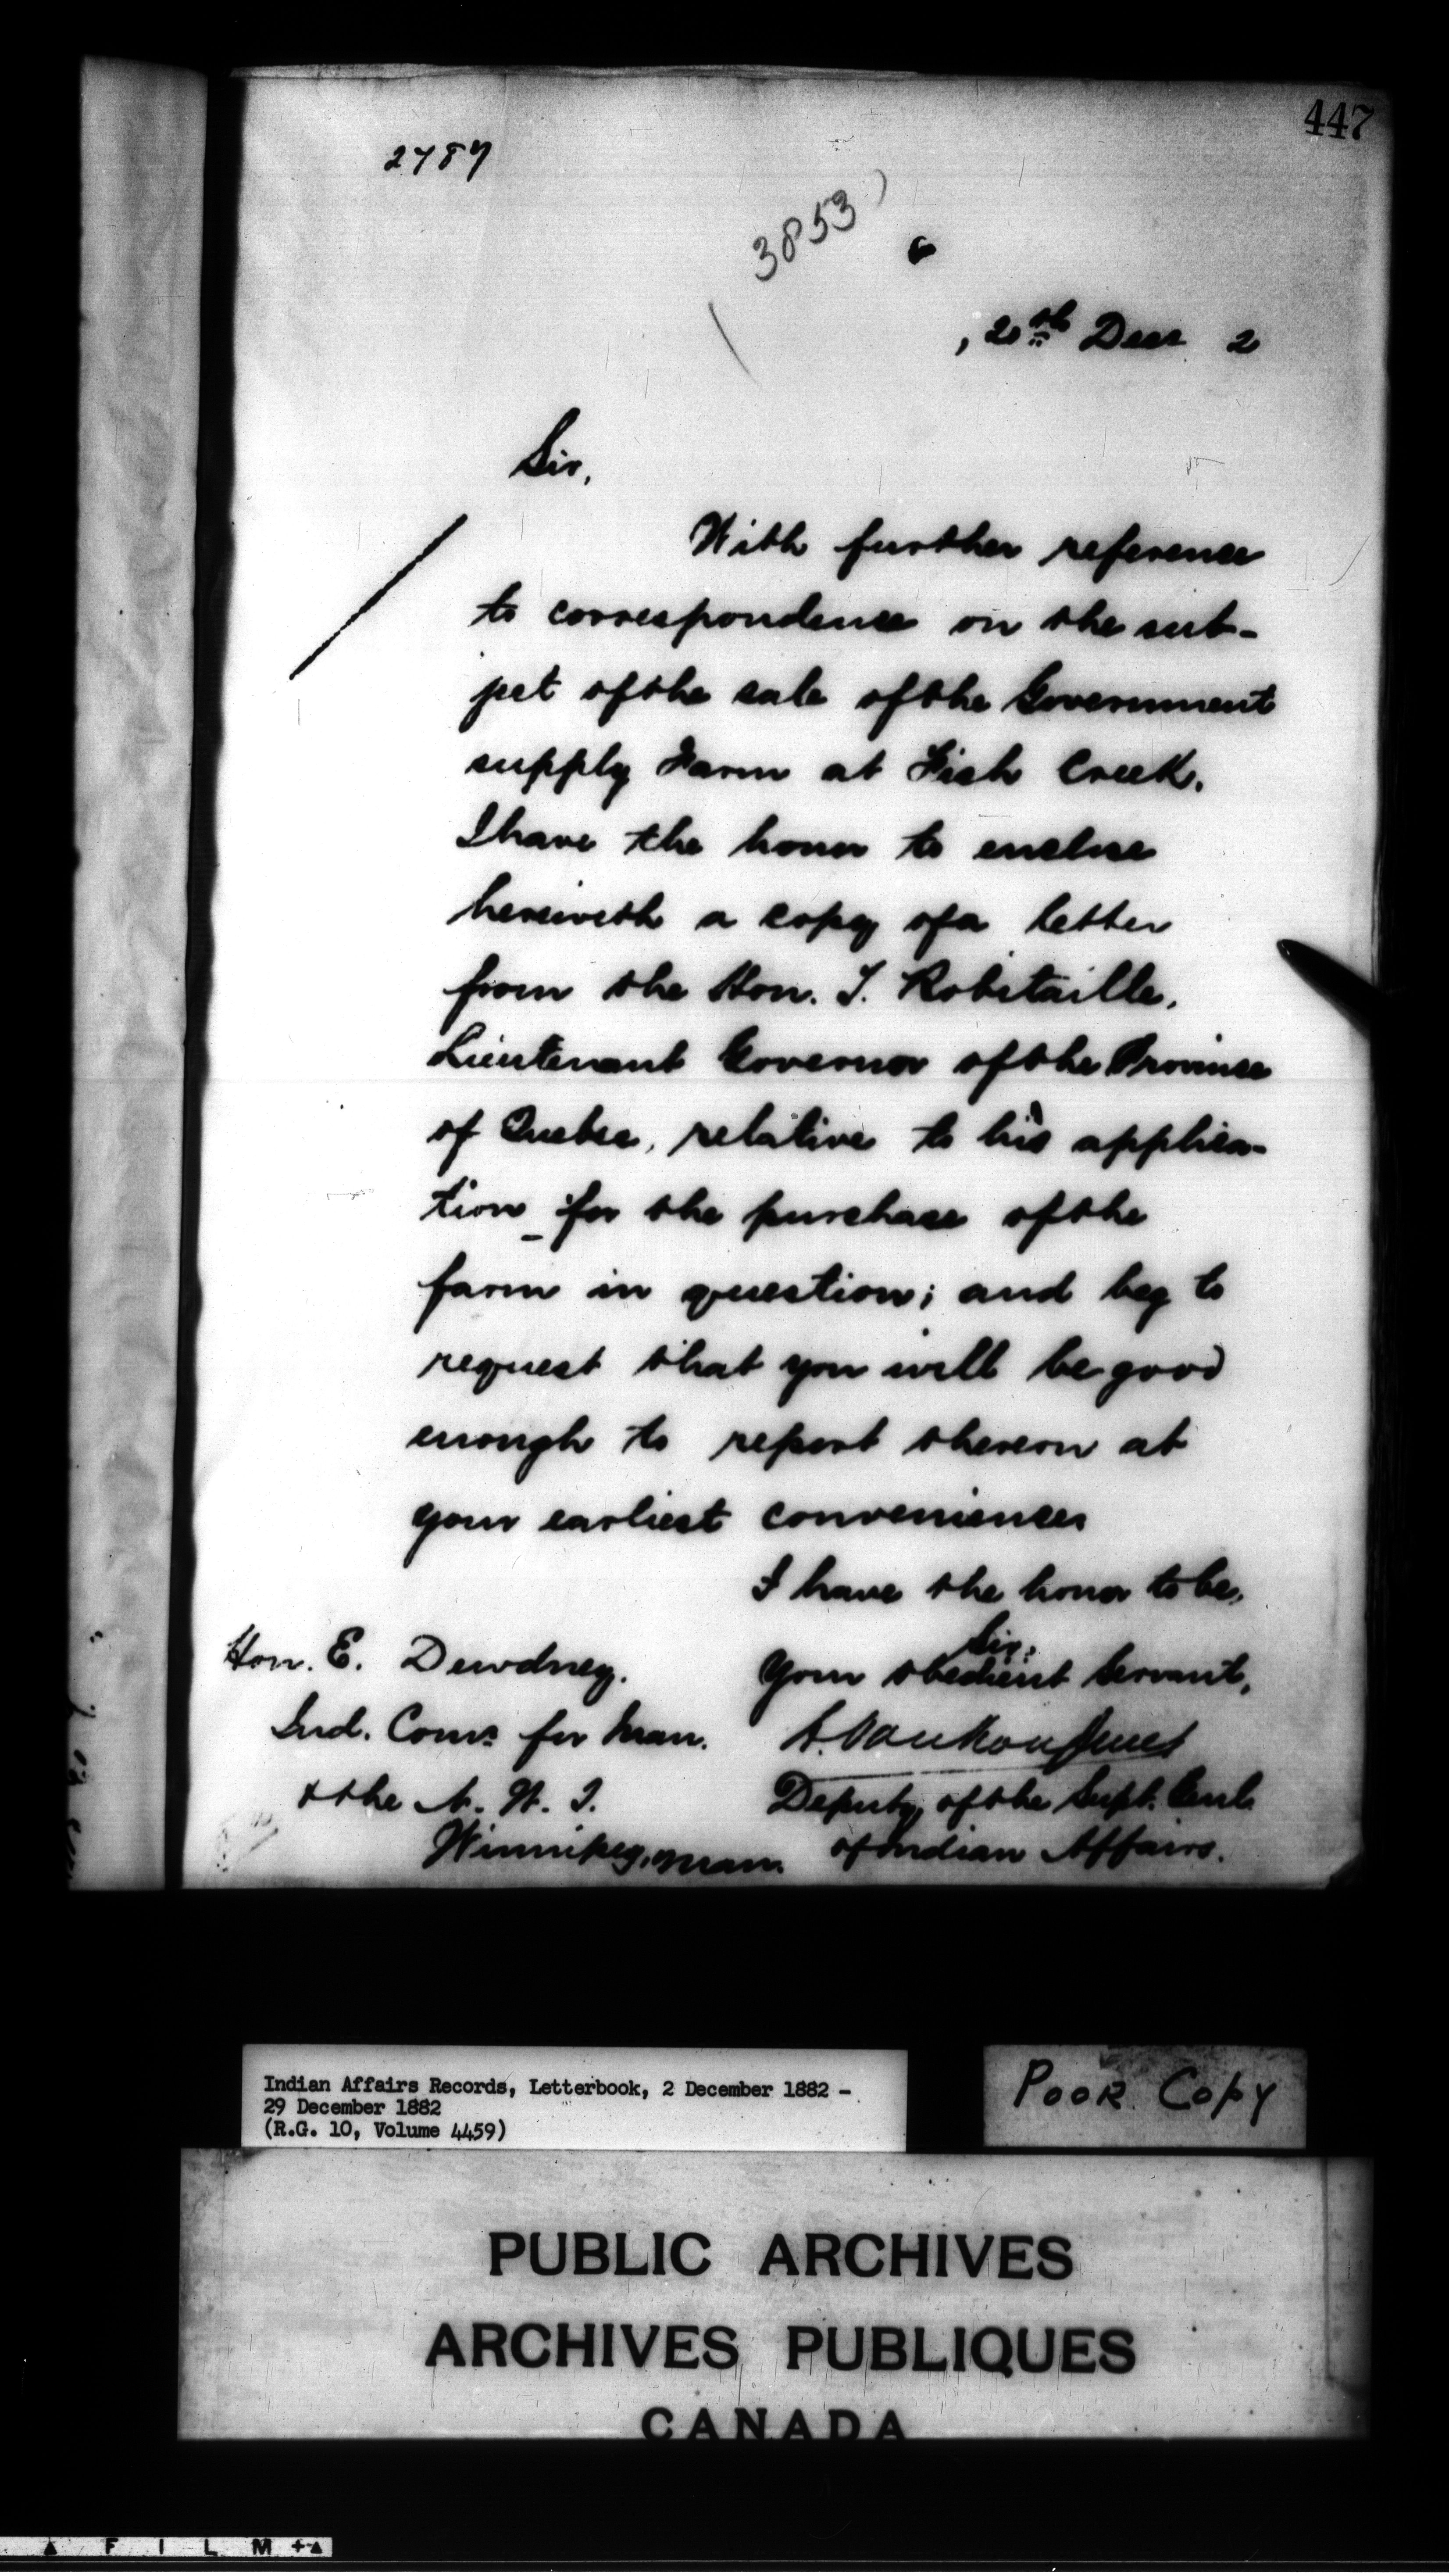 447
2787
3853
, 20th Decr 2
Sir,
With further reference
to correspondence on the sub-
ject of the sale of the Government
supply Farm at Fish Creek.
I have the honor to enclose
herewith a copy of a letter
from the Hon. T. Robitaille,
Lieutenant Governor of the Province
of Quebec, relative to his applica-
tion for the purchase of the
farm in question; and beg to
request that you will be good
enough to report thereon at
your earliest convenience
I have the honor to be,
Sir,
Your obedient servant,
L. VanKoughnet
Deputy of the Supt. Genl.
of Indian Affairs.
Hon. E. Dewdney.
Ind. Comr. for Man.
& the N. W. T.
Winnipeg, Man.
Indian Affairs Records, Letterbook, 2 December 1882 -
29 December 1882
(R.G. 10, Volume 4459)
POOR COPY
PUBLIC ARCHIVES
ARCHIVES PUBLIQUES
CANADA
FILM